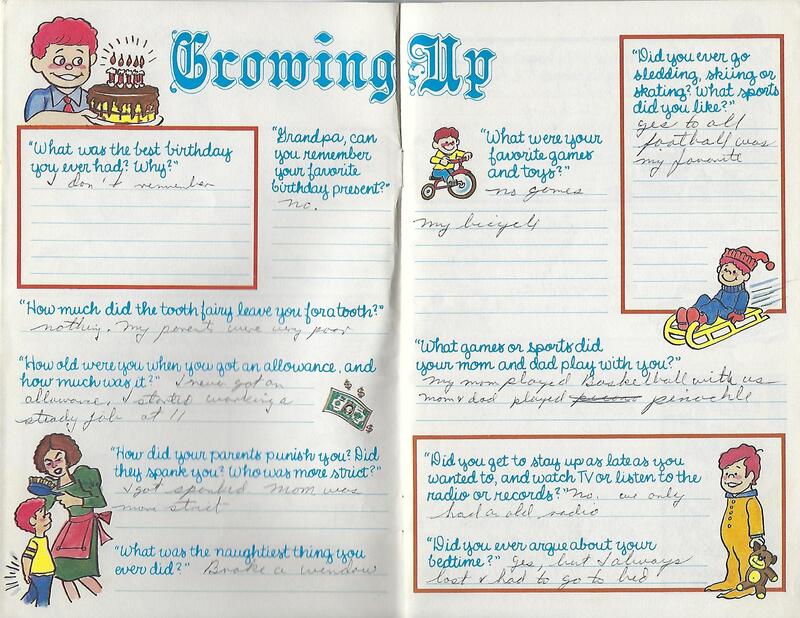 Growing Up
"What was the best birthday
you ever had? Why?"
I don't remember
"Grandpa, can
you remember
your favorite
birthday present?"
no.
"How much did the tooth fairy leave you for a tooth?"
nothing. My parents were very poor
"How old were you when you got an allowance, and
how much was it?" I never got an
allowance. I started working a
steady job at 11
"How did your parents punish you? Did
they spank you? Who was more strict?"
I got spanked Mom was
more strict
"What was the naughtiest thing you
ever did?" Broke a window
"What were your
favorite games
and toys?"
no games
my bicycle
"Did you ever go
sledding, skiing or
skating? What sports
did you like?"
yes to all
football was
my favorite
"What games or sports did
your mom and dad play with you?"
my mom played Basketball with us
mom & dad played pinochle
"Did you get to stay up as late as you
wanted to, and watch TV or listen to the
radio or records?" No. we only
had a old radio
"Did you ever argue about your
bedtime?" yes, but I always
lost & had to go to bed